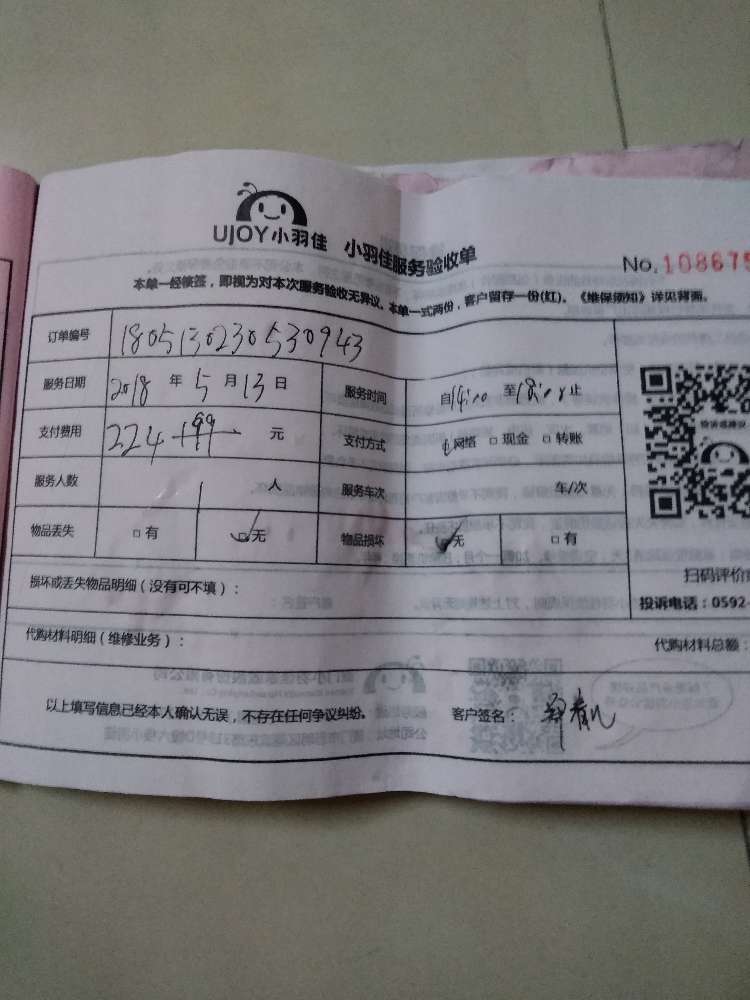 UJOY小羽佳 小羽佳服务验收单
No. 108675
本单一经核签，即视为对本次服务验收无异议。本单一式两份，客户留存一份(红)。《维保须知》详见背面。
订单编号 180513023053 0943
服务日期 2018 年 5 月 13 日 服务时间 自14:00 至18:00止
支付费用 224 199 元 支付方式 网络 □ 现金 □ 转账
服务人数 1 人 服务车次 车/次
物品丢失 □ 有 □ 无 物品损坏 □ 无 □ 有
扫码评价
损坏或丢失物品明细（没有可不填）：
投诉电话：0592-
代购材料明细（维修业务）：
代购材料总额：
以上填写信息已经本人确认无误，不存在任何争议纠纷。 客户签名：